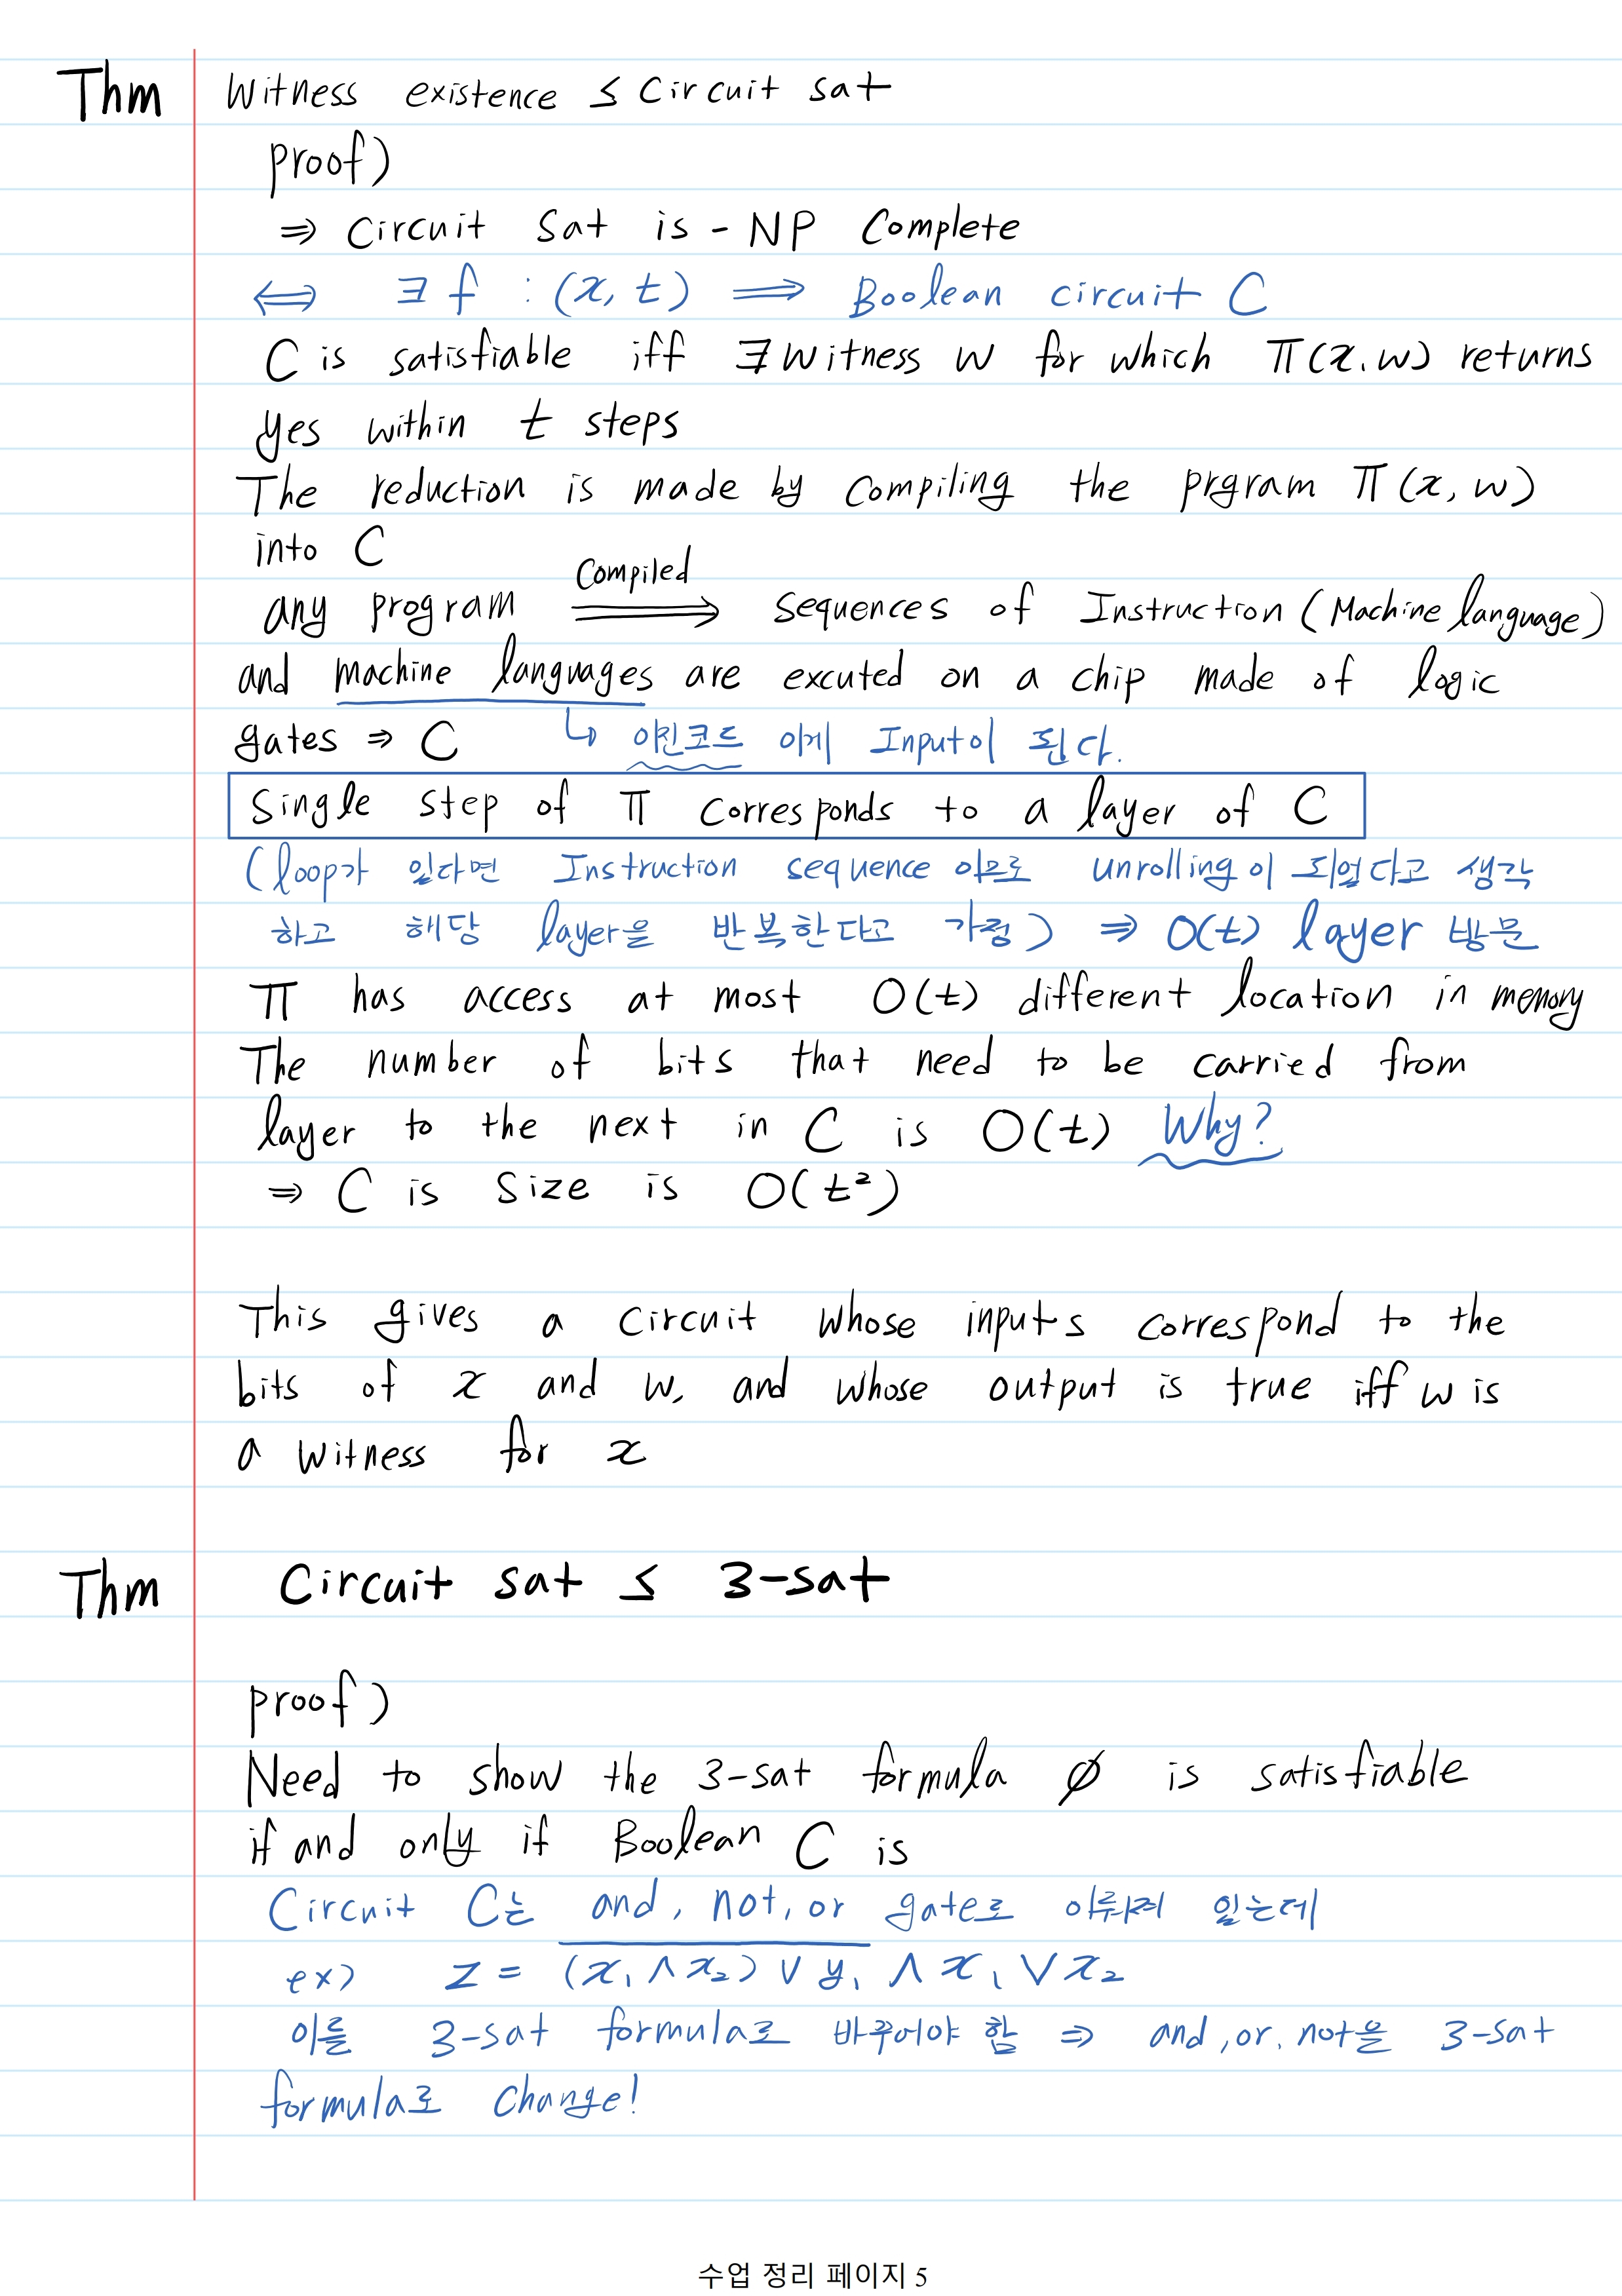 Thm Witness existence ≤ Circuit sat
proof)
⇒ Circuit Sat is - NP Complete
⟺ ∃ f : (x, t) ⟹ Boolean circuit C
C is satisfiable iff ∃ witness w for which Π(x.w) returns
yes within t steps
The reduction is made by compiling the prgram Π(x, w)
into C
Compiled
any program ⟹ sequences of Instruction (Machine language)
and machine languages are excuted on a chip made of logic
gates ⇒ C ↳ 이진코드 이게 Input이 된다.
Single step of Π corresponds to a layer of C
(loop가 있다면 Instruction sequence 이므로 unrolling이 되었다고 생각
하고 해당 layer을 반복한다고 가정) ⇒ O(t) layer 방문
Π has access at most O(t) different location in memory
The number of bits that need to be carried from
layer to the next in C is O(t) Why?
⇒ C is size is O(t²)
This gives a circuit whose inputs correspond to the
bits of x and w, and whose output is true iff w is
a witness for x
Thm Circuit sat ≤ 3-sat
proof)
Need to show the 3-sat formula ∅ is satisfiable
if and only if Boolean C is
Circuit C는 and, not, or gate로 이뤄져 있는데
ex) z = (x₁ ∧ x₂) ∨ y₁ ∧ x₁ ∨ x₂
이를 3-sat formula로 바꾸어야 함 ⇒ and, or, not을 3-sat
formula로 change!
수업 정리 페이지 5